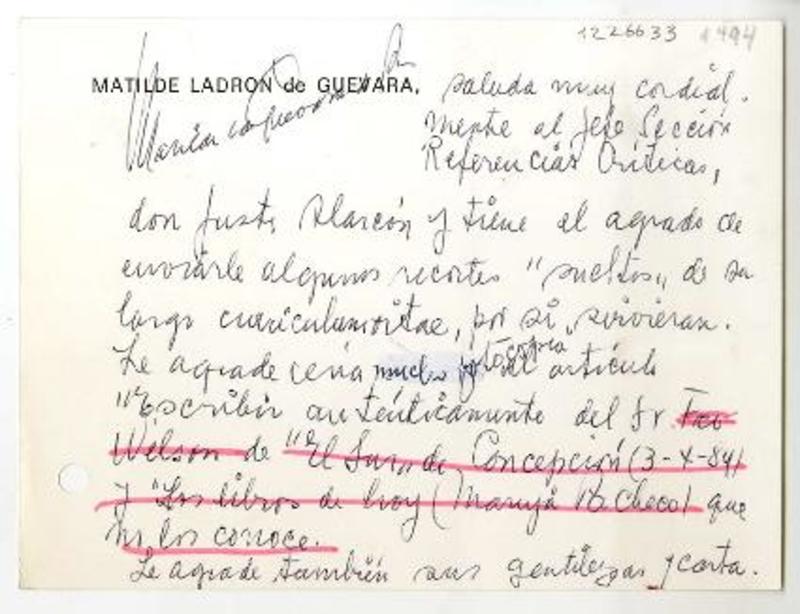 1226633 1494
MATILDE LADRON de GUEVARA, saluda muy cordial.
mente al Jefe Sección
Referencias Críticas,
don Justo Alarcón y tiene el agrado de
enviarle algunos recortes "sueltos" de su
largo curriculumvitae, por si sirvieran.
Le agradecería mucho fotocopia el artículo
"Escribir auténticamente del Sr
Wilson de "El Sur de Concepción (3-X-84)
y "Los libros de hoy (Maruja Pacheco) que
no los conoce.
Le agrade también sus gentilezas y carta.